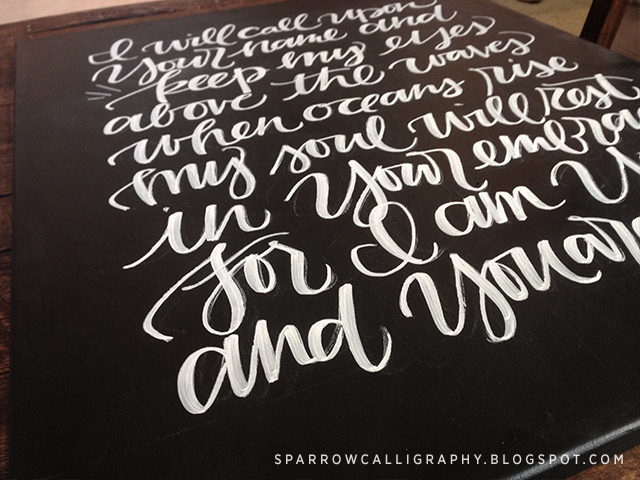 I will call upon
Your name and
keep my eyes
above the waves
when oceans rise
my soul will rest
in Your embra
for I am Y
and You ar
SPARROWCALLIGRAPHY.BLOGSPOT.COM